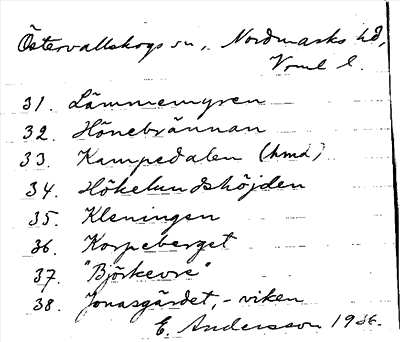 Östervallskogs sn., Nordmarks hd,
Vrml l.
31. Lämmemyren
32. Hönebrännan
33. Kampedalen (hmd)
34. Hökelundshöjden
35. Kleningen
36. Korpeberget
37. "Björkevre"
38. Jonasgärdet, - viken
E. Andersson 1936.